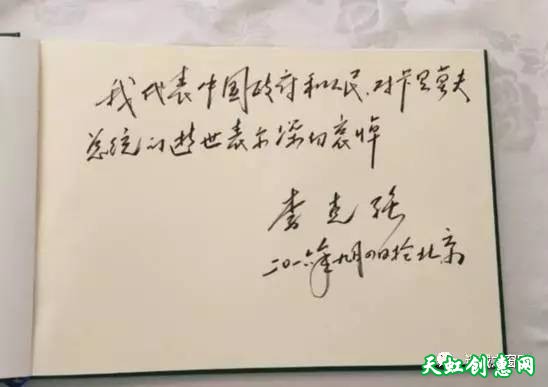 我代表中国政府和人民，对卡里莫夫
总统的逝世表示深切哀悼
李克强
二〇一六年九月四日於北京
天虹创意网